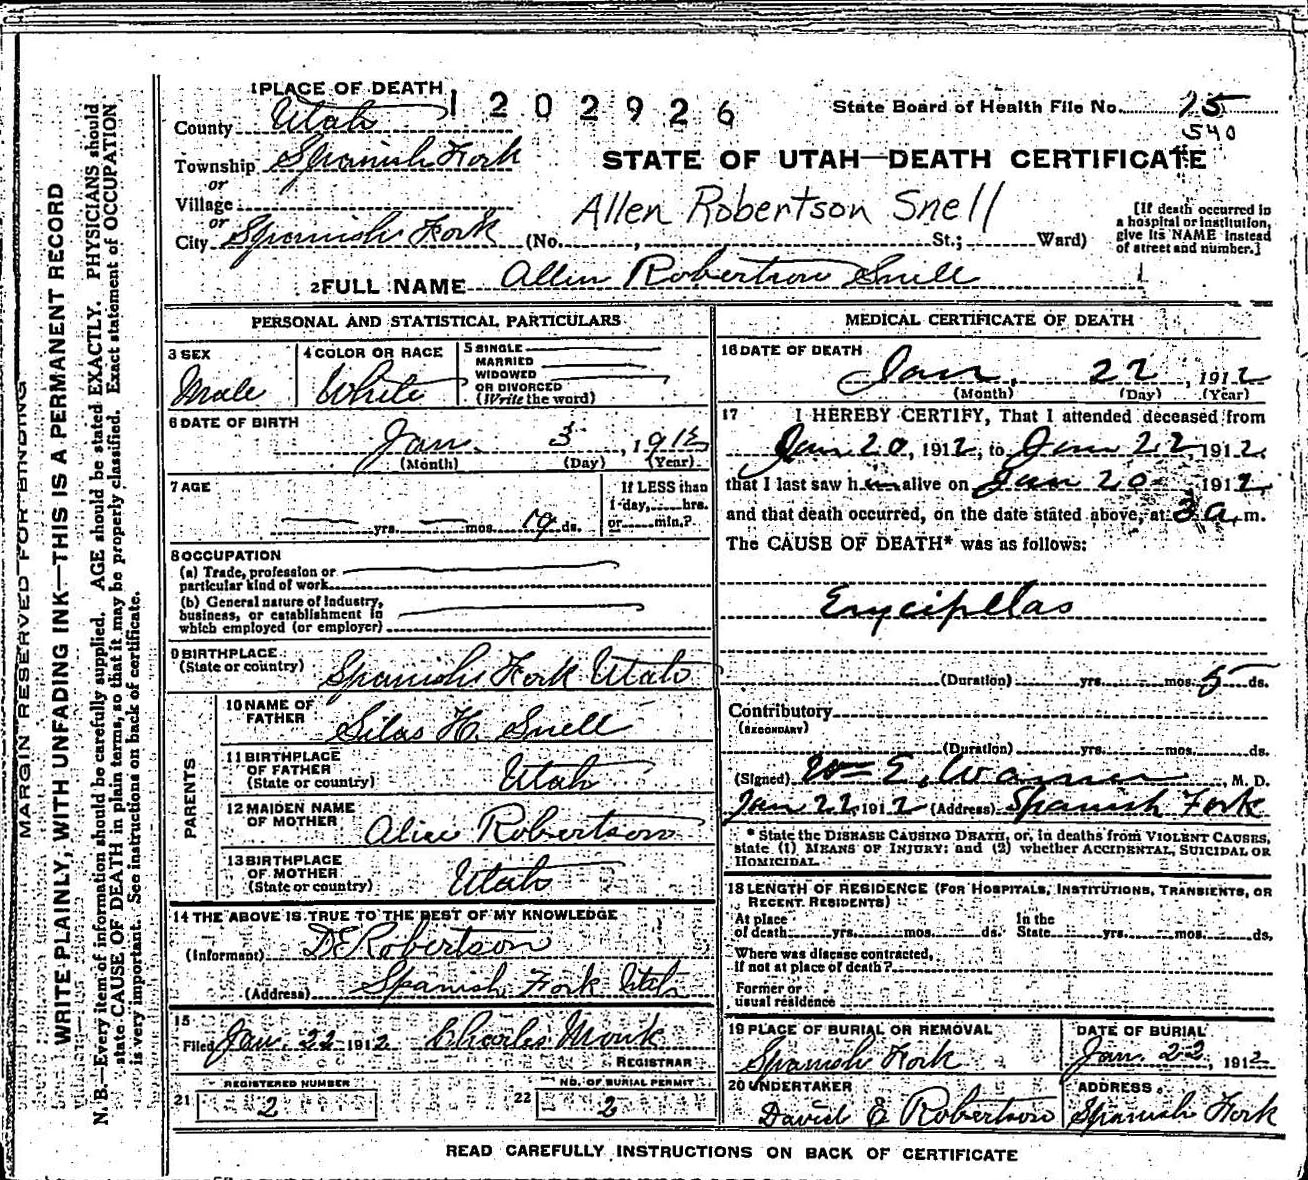 MARGIN RESERVED FOR BINDING
WRITE PLAINLY, WITH UNFADING INK—THIS IS A PERMANENT RECORD
N. B.—Every item of information should be carefully supplied. AGE should be stated EXACTLY. PHYSICIANS should
state CAUSE OF DEATH in plain terms, so that it may be properly classified. Exact statement of OCCUPATION
is very important. See instructions on back of certificate.
1 PLACE OF DEATH
1202926
State Board of Health File No. 15
540
County Utah
Township Spanish Fork
or
Village
or
City Spanish Fork (No. , St.; Ward)
STATE OF UTAH—DEATH CERTIFICATE
Allen Robertson Snell
[If death occurred in
a hospital or institution,
give its NAME instead
of street and number.]
2 FULL NAME Allen Robertson Snell
PERSONAL AND STATISTICAL PARTICULARS
3 SEX
Male
4 COLOR OR RACE
White
5 SINGLE
MARRIED
WIDOWED
OR DIVORCED
(Write the word)
6 DATE OF BIRTH
Jan. 3, 1912
(Month) (Day) (Year)
7 AGE
yrs. mos. 19 ds.
If LESS than
1 day, hrs.
or min.?
8 OCCUPATION
(a) Trade, profession or
particular kind of work
(b) General nature of industry,
business, or establishment in
which employed (or employer)
9 BIRTHPLACE
(State or country) Spanish Fork Utah
PARENTS
10 NAME OF
FATHER Silas H. Snell
11 BIRTHPLACE
OF FATHER
(State or country) Utah
12 MAIDEN NAME
OF MOTHER Alice Robertson
13 BIRTHPLACE
OF MOTHER
(State or country) Utah
14 THE ABOVE IS TRUE TO THE BEST OF MY KNOWLEDGE
(Informant) D E Robertson
(Address) Spanish Fork Utah
15
Filed Jan. 22 1912 Charles Monk
REGISTRAR
REGISTERED NUMBER
21 2
NO. OF BURIAL PERMIT
22 2
MEDICAL CERTIFICATE OF DEATH
16 DATE OF DEATH
Jan. 22, 1912
(Month) (Day) (Year)
17 I HEREBY CERTIFY, That I attended deceased from
Jan 20, 1912, to Jan 22, 1912,
that I last saw him alive on Jan 20 1912,
and that death occurred, on the date stated above, at 3 a. m.
The CAUSE OF DEATH* was as follows:
Erycipelas
(Duration) yrs. mos. 5 ds.
Contributory
(SECONDARY)
(Duration) yrs. mos. ds.
(Signed) Wm E. Warner, M. D.
Jan 22, 1912 (Address) Spanish Fork
* State the DISEASE CAUSING DEATH, or, in deaths from VIOLENT CAUSES,
state (1) MEANS OF INJURY; and (2) whether ACCIDENTAL, SUICIDAL OR
HOMICIDAL.
18 LENGTH OF RESIDENCE (FOR HOSPITALS, INSTITUTIONS, TRANSIENTS, OR
RECENT RESIDENTS)
At place
of death yrs. mos. ds.
In the
State yrs. mos. ds.
Where was disease contracted,
if not at place of death?
Former or
usual residence
19 PLACE OF BURIAL OR REMOVAL
Spanish Fork
DATE OF BURIAL
Jan. 22, 1912
20 UNDERTAKER
David E Robertson
ADDRESS
Spanish Fork
READ CAREFULLY INSTRUCTIONS ON BACK OF CERTIFICATE